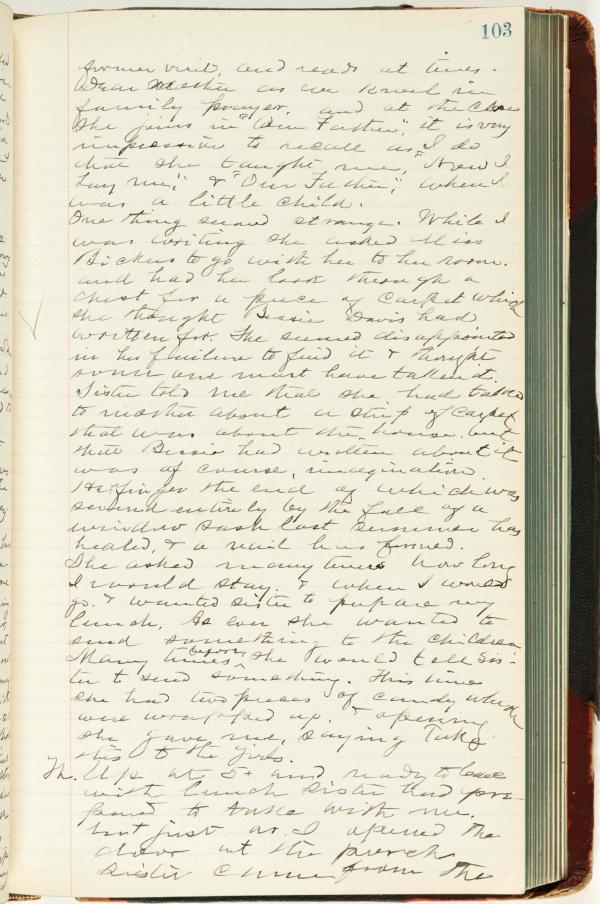 103
former visit, and reads at times.
Dear Mother as we kneel in
family prayer, and at the close
she joins in "Our Father", it is very
impressive to recall as I do
that she taught me, "Now I
lay me", & "Our Father", when I
was a little child.
One thing seemed strange. While I
was writing she asked Miss
Bickers to go with her to her room.
and had her look through a
chest for a piece of carpet which
she thought Bessie Davis had
written for. She seemed disappointed
in her failure to find it & thought
some one must have taken it.
Sister told me that she had talked
to mother about a strip of carpet
that was about the house. but
that Bessie had written about it
was of course, imagination.
Her finger the end of which was
severed entirely by the fall of a
window sash last summer has
healed, & a nail has formed.
She asked many times how long
I would stay, & when I would
go. & wanted sister to prepare my
lunch. As ever she wanted to
send something to the children
Many times before she would tell Sis-
ter to send something. This time
she had two pieces of candy which
were wrapped up. & opening
she gave me, saying Take
this to the girls.
Th. Up at 5+ and ready to leave
with lunch sister had pre-
pared to take with me.
but just as I opened the
door at the porch
sister came from the